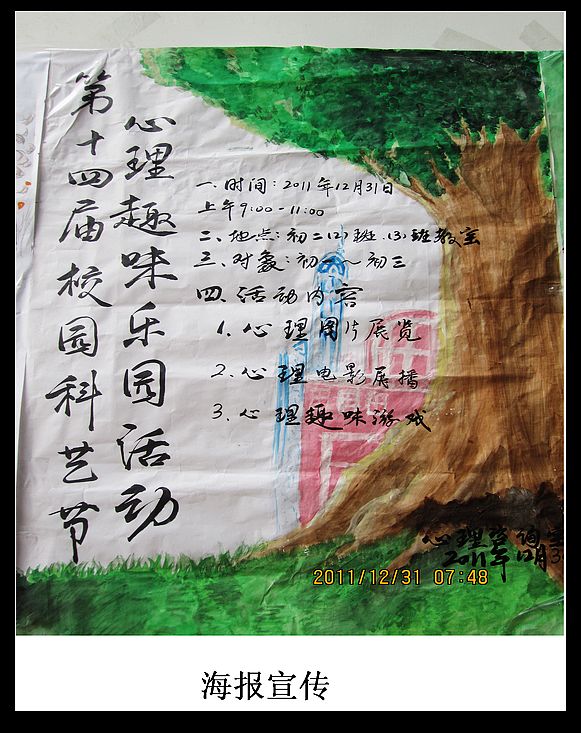 第十四届校园科艺节
心理趣味乐园活动
一、时间：2011年12月31日
上午9:00-11:00
二、地点：初二(2)班、(3)班教室
三、对象：初一～初三
四、活动内容
1、心理图片展览
2、心理电影展播
3、心理趣味游戏
心理咨询室
2011年12月3
2011/12/31 07:48
海报宣传